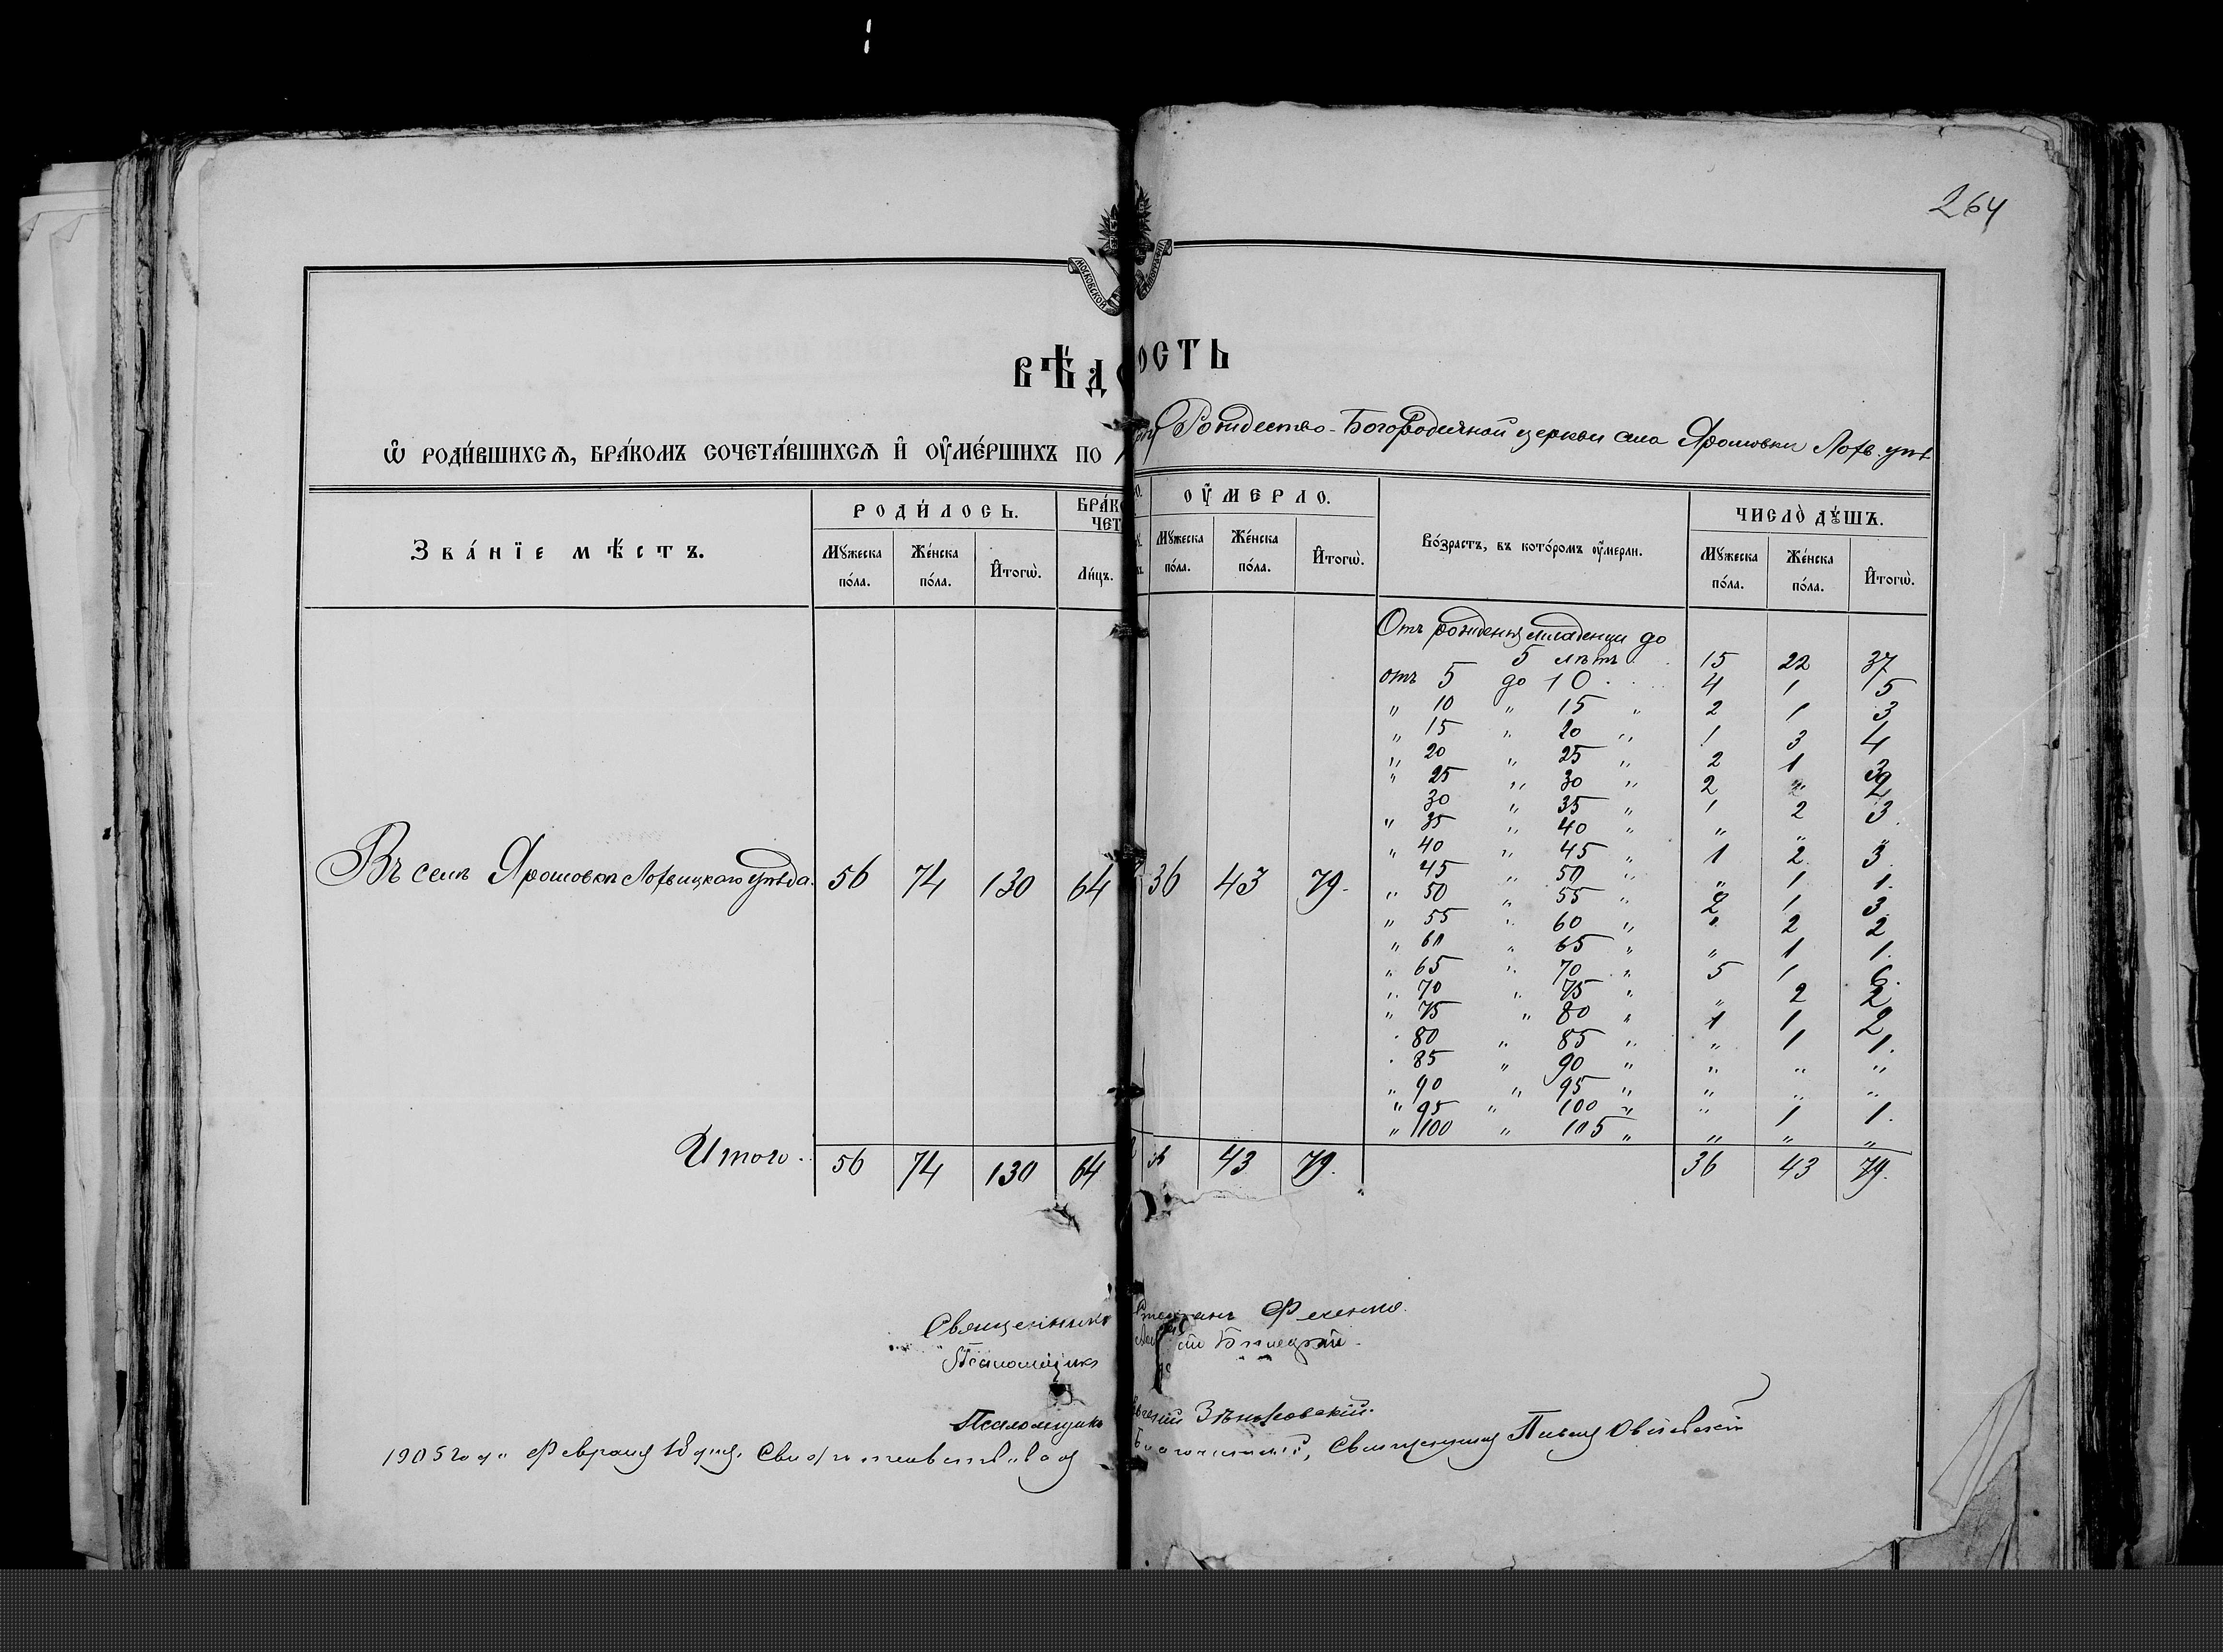 264
МОСКОВСКОЙ
ВѢДОСТЬ
Ѡ РОДИ́ВШИХСѦ, БРА́КОМЪ СОЧЕТА́ВШИХСѦ И҆ ОУ҆МЕ́РШИХЪ ПО Рождество-Богородичной церкви села Ярошовки Лохв. уѣ
Зва́нїе мѣ́стъ.
РОДИ́ЛОСЬ.
Мꙋ́жеска по́ла.
Же́нска по́ла.
И҆тогѡ̀.
БРА́КО
ЧЕТ
Ли́цъ.
ОУ҆́МЕРЛО.
Мꙋ́жеска по́ла.
Же́нска по́ла.
И҆тогѡ̀.
Во́зрастъ, въ кото́ромъ оу҆́мерли.
ЧИСЛО̀ ДꙊ́ШЪ.
Мꙋ́жеска по́ла.
Же́нска по́ла.
И҆тогѡ̀.
Въ селѣ Ярошовкѣ Лохвицкаго уѣзда. 56 74 130 64 36 43 79.
Отъ рожденія младенцы до
5 лѣтъ 15 22 37
отъ 5 до 10 4 1 5
" 10 " 15 " 2 1 3
" 15 " 20 " 1 3 4
" 20 " 25 " 2 1 3
" 25 " 30 " 2 " 2
30 " 35 " 1 2 3
" 35 " 40 " " " "
" 40 " 45 " 1 2 3
45 " 50 " " 1 1.
" 50 " 55 " 2 1 3
" 55 " 60 " " 2 2
" 60 " 65 " " 1 1.
" 65 " 70 " 5 1 6.
" 70 " 75 " " 2 2
" 75 " 80 " 1 1 2
" 80 " 85 " " 1 1.
" 85 " 90 " " " "
" 90 " 95 " " " "
" 95 " 100 " " 1 1.
" 100 " 105 " " " "
Итого. 56 74 130 64 43 79. 36 43 79.
Священникъ Стефанъ
Псаломщикъ
Псаломщикъ Зѣньковскій.
1905 года Февраля 18 дня. Свидѣтельствовалъ Благочинный, Священникъ Павелъ